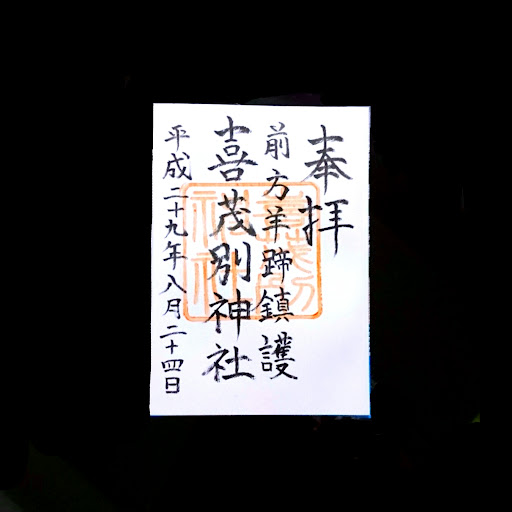 奉拝
前方羊蹄鎮護
喜茂別神社
平成二十九年八月二十四日